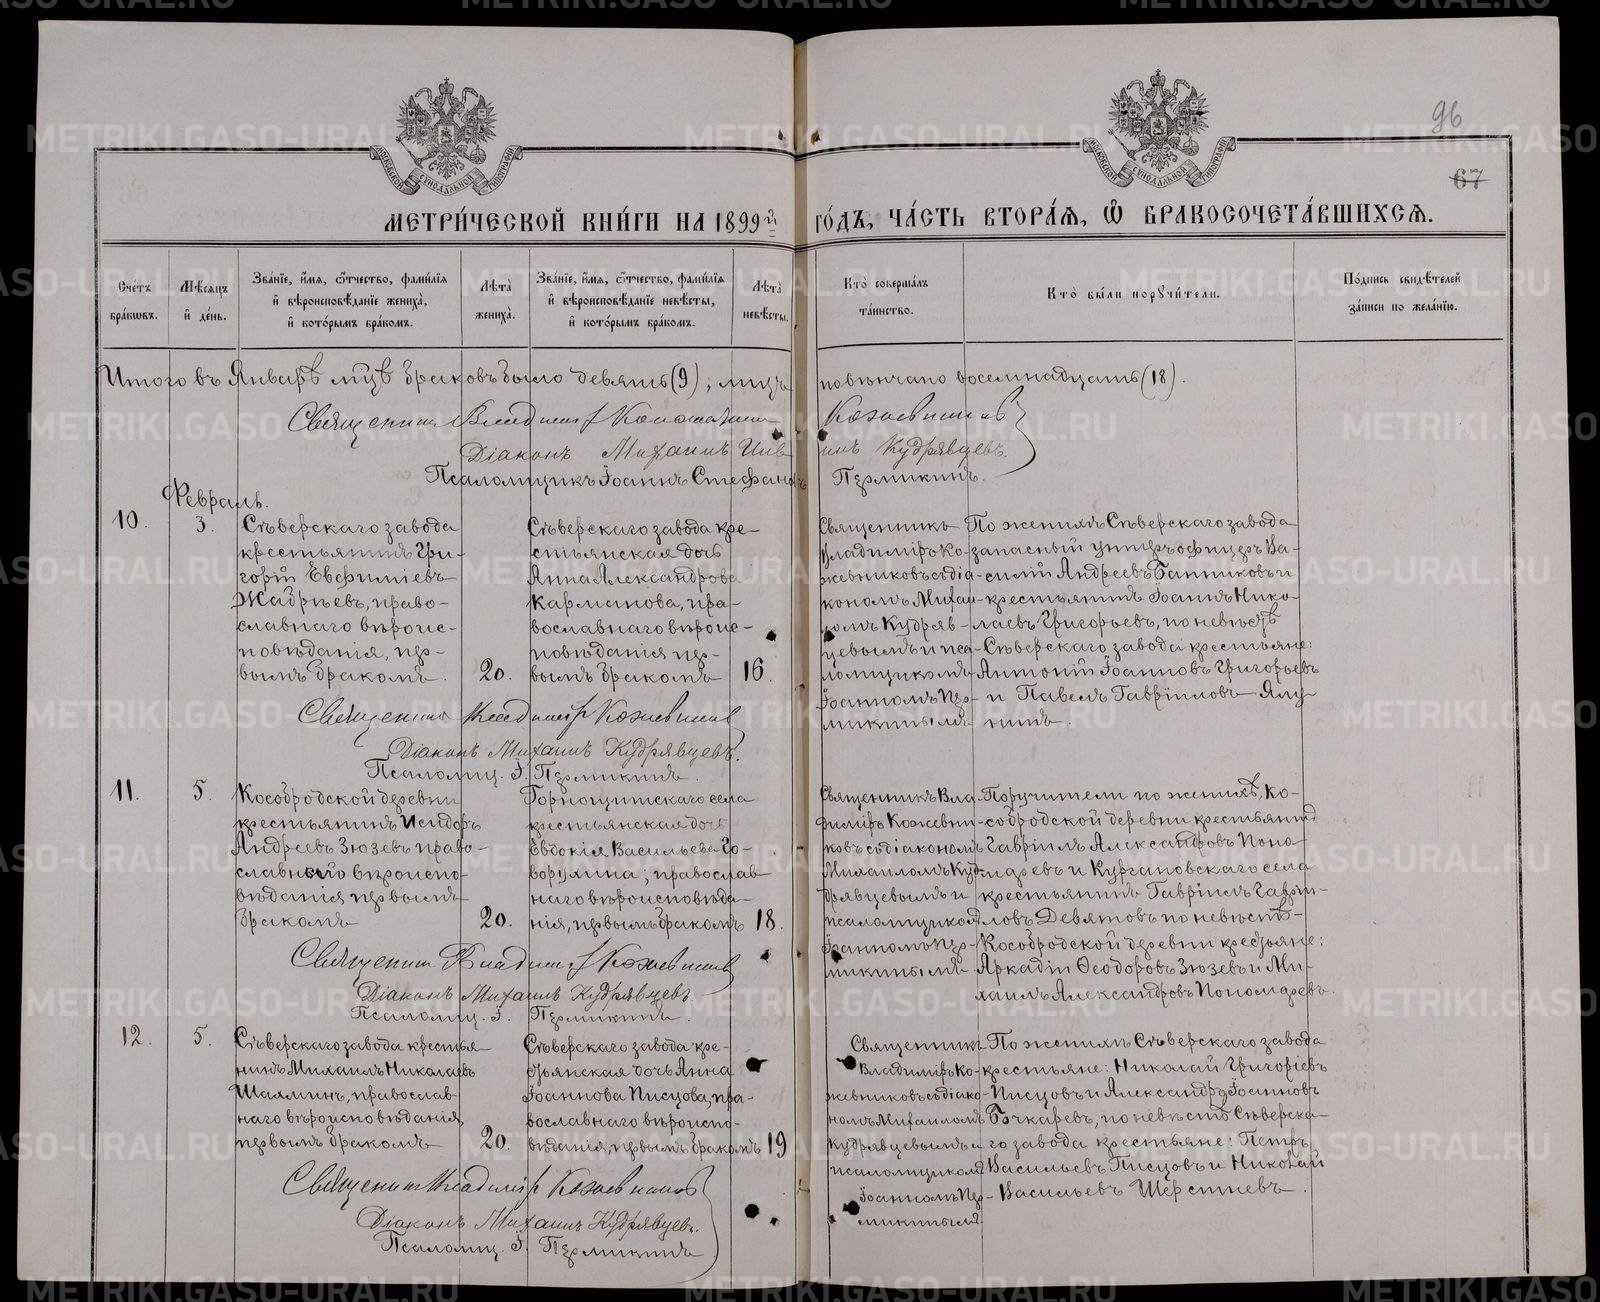 96
67
МОСКОВСКОЙ СУНОДАЛЬНОЙ ТИПОГРАФІИ
МОСКОВСКОЙ СУНОДАЛЬНОЙ ТИПОГРАФІИ
МЕТРИ́ЧЕСКОЙ КНИ́ГИ НА 1899й ГО́ДЪ, ЧА́СТЬ ВТОРА́Я, Ѽ БРАКОСОЧЕТА́ВШИХСЯ.
Сче́тъ бра́кѡвъ.
Мѣ́сяцъ и҆ де́нь.
Зва́нїе, и҆́мя, ѻ҆́тчество, фами́лїя и҆ вѣроисповѣ́данїе жениха̀, и҆ кото́рымъ бра́комъ.
Лѣ́та жениха̀.
Зва́нїе, и҆́мя, ѻ҆́тчество, фами́лїя и҆ вѣроисповѣ́данїе невѣ́сты, и҆ кото́рымъ бра́комъ.
Лѣ́та невѣ́сты.
Кто̀ соверша́лъ та́инство.
Кто̀ бы́ли порꙋчи́тели.
По́дпись свидѣ́телей за́писи по жела́нїю.
Итого въ Январѣ мцѣ браковъ было девять (9), лицъ повѣнчано восемнадцать (18).
Священникъ Владиміръ Константин Кожевниковъ
Діаконъ Михаилъ Кудрявцевъ.
Псаломщикъ Іоаннъ Стефановъ Пермикинъ.
Февраль.
10.
3.
Сѣверскаго завода
крестьянинъ Гри-
горій Евфиміевъ
Жабрѣевъ, право-
славнаго вѣроис-
повѣданія, пер-
вымъ бракомъ.
20.
Сѣверскаго завода кре-
стьянская дочь
Анна Александрова
Карманова, пра-
вославнаго вѣроис-
повѣданія пер-
вымъ бракомъ
16.
Священникъ
Владиміръ Ко-
жевниковъ съ діа-
кономъ Михаи-
ломъ Кудряв-
цевымъ и пса-
ломщикомъ
Іоанномъ Пер-
микинымъ
По женихѣ Сѣверскаго завода
запасный унтеръ офицеръ Ва-
силій Андреевъ Банниковъ и
крестьянинъ Іоаннъ Нико-
лаевъ Григорьевъ, по невѣстѣ
Сѣверскаго завода крестьяне:
Антоній Іоанновъ Григорьевъ
и Павелъ Гавріиловъ Яку-
нинъ.
Священникъ Владиміръ Кожевниковъ
Діаконъ Михаилъ Кудрявцевъ.
Псаломщ. І. Пермикинъ.
11.
5.
Кособродской деревни
крестьянинъ Исидоръ
Андреевъ Зюзевъ право-
славнаго вѣроиспо-
вѣданія первымъ
бракомъ
20.
Горнощитскаго села
крестьянская дочь
Евдокія Васильева Го-
ворухина; православ
наго вѣроисповѣда-
нія, первымъ бракомъ
18.
Священникъ Вла-
диміръ Кожевни-
ковъ съ діакономъ
Михаиломъ Куд-
рявцевымъ и
псаломщикомъ
Іоанномъ Пер-
микинымъ
Поручители по женихѣ, Ко-
собродской деревни крестьянинъ
Гавріилъ Александровъ Поно-
маревъ и Кургановскаго села
крестьянинъ Гавріилъ Гаврі-
ловъ Девятовъ по невѣстѣ-
Кособродской деревни крестьяне:
Аркадій Ѳеодоровъ Зюзевъ и Ми-
хаилъ Александровъ Пономаревъ.
Священникъ Владиміръ Кожевниковъ
Діаконъ Михаилъ Кудрявцевъ.
Псаломщ. І. Пермикинъ.
12.
5.
Сѣверскаго завода крестья-
нинъ Михаилъ Николаевъ
Шахминъ, православ-
наго вѣроисповѣданія,
первымъ бракомъ
20.
Сѣверскаго завода кре-
стьянская дочь Анна
Іоаннова Писцова, пра-
вославнаго вѣроиспо-
вѣданія, первымъ бракомъ
19
Священникъ
Владиміръ Ко-
жевниковъ съ діако-
номъ Михаиломъ
Кудрявцевымъ и
псаломщикомъ
Іоанномъ Пер-
микинымъ.
По женихѣ Сѣверскаго завода
крестьяне: Николай Григоріевъ
Писцовъ и Александръ Іоанновъ
Бочкаревъ, по невѣстѣ Сѣверска-
го завода крестьяне: Петръ
Васильевъ Писцовъ и Николай
Васильевъ Шерстневъ.
Священникъ Владиміръ Кожевниковъ
Діаконъ Михаилъ Кудрявцевъ.
Псаломщ. І. Пермикинъ
METRIKI.GASO-URAL.RU